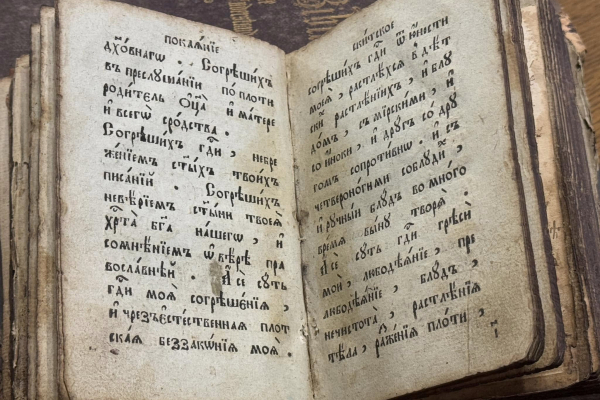 покаѧ́нїе
дх҃о́внагѡ . Согрѣши́хъ
въ преслꙋша́нїи по пло́ти
роди́тель ѻ҆ц҃а̀ и҆ ма́тере
и҆ всегѡ̀ сро́дства .
Согрѣши́хъ гд҇и , небре
же́нїемъ ст҃ы́хъ твои́хъ
писа́нїй . Согрѣши́хъ
невѣ́рїемъ ст҃ы́ни твоеѧ̀
хр҇та̀ бг҃а на́шегѡ , и҆
сомнѣ́нїемъ ѡ҆ вѣ́рѣ пра
восла́внѣй . А҆ сѐ сꙋ́ть
гд҇и моѧ̀ согрѣше́нїѧ ,
и҆ чрезъесте́ственнаѧ пло́т
скаѧ беззако́нїѧ моѧ̀ .
ски́тское
согрѣши́хъ гд҇и ѿ ю҆́ности
моеѧ̀ , растлѣ́хсѧ в дѣ́т
скїй растлѣ́нїихъ , и҆ блꙋ
до́мъ , съ мі́рскими , и҆
со и҆́ноки , и҆ дрꙋ́гъ со дрꙋ
гомъ сопроти́внѡ . и҆ съ
четвероно́гими соблꙋди́хъ ,
и҆ рꙋчны́й блꙋ́дъ во мно́го
вре́мѧ творѧ̀ .
А҆ сѐ сꙋ́ть гд҇и грѣсѝ
моѝ , любодѣѧ́нїе , пре
любодѣѧ́нїе , блꙋ́дъ ,
нечистота̀ , растлѣ́нїѧ
тѣ́ла , раже́нїѧ пло́ти ,